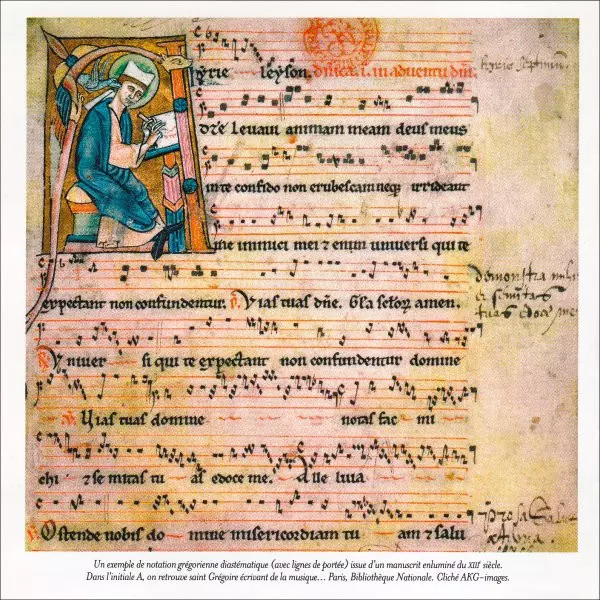 kyrie leyson. dn̄ica. i. in adventu dn̄i.
ad te levavi animam meam deus meus
in te confido non erubescam neqꝫ irrideant
me inimici mei ⁊ enim universi qui te
expectant non confundentur. p̄. Vias tuas dn̄e. Gl̄a sc̄lor̄ amen.
Vniver si qui te expectant non confundentur domine
Vias tuas domine notas fac mi
chi ⁊ semitas tu as edoce me. Alle luia
Ostende nobis do mine misericordiam tu am ⁊ salu
demonstra mihi
et semitas
tuas edoce me
prosa Salus
Un exemple de notation grégorienne diastématique (avec lignes de portée) issue d'un manuscrit enluminé du XIIIᵉ siècle.
Dans l'initiale A, on retrouve saint Grégoire écrivant de la musique... Paris, Bibliothèque Nationale. Cliché AKG-images.